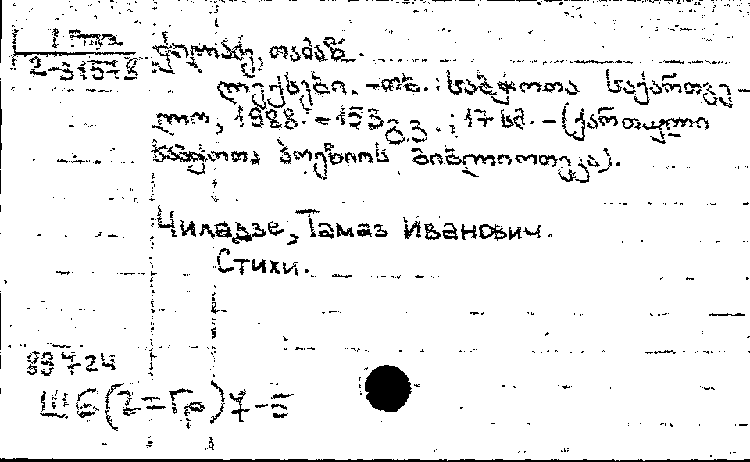 2-31578
ჭილაძე, თამაზ.
ლექსები. - თბ. : საბჭოთა საქართვე-
ლო, 1988. - 153 გვ. ; 17 სმ. - (ქართული
საბჭოთა პოეზიის ბიბლიოთეკა).
Чиладзе, Тамаз Иванович.
Стихи.
89 724
Ш6(2=Гр)7-5